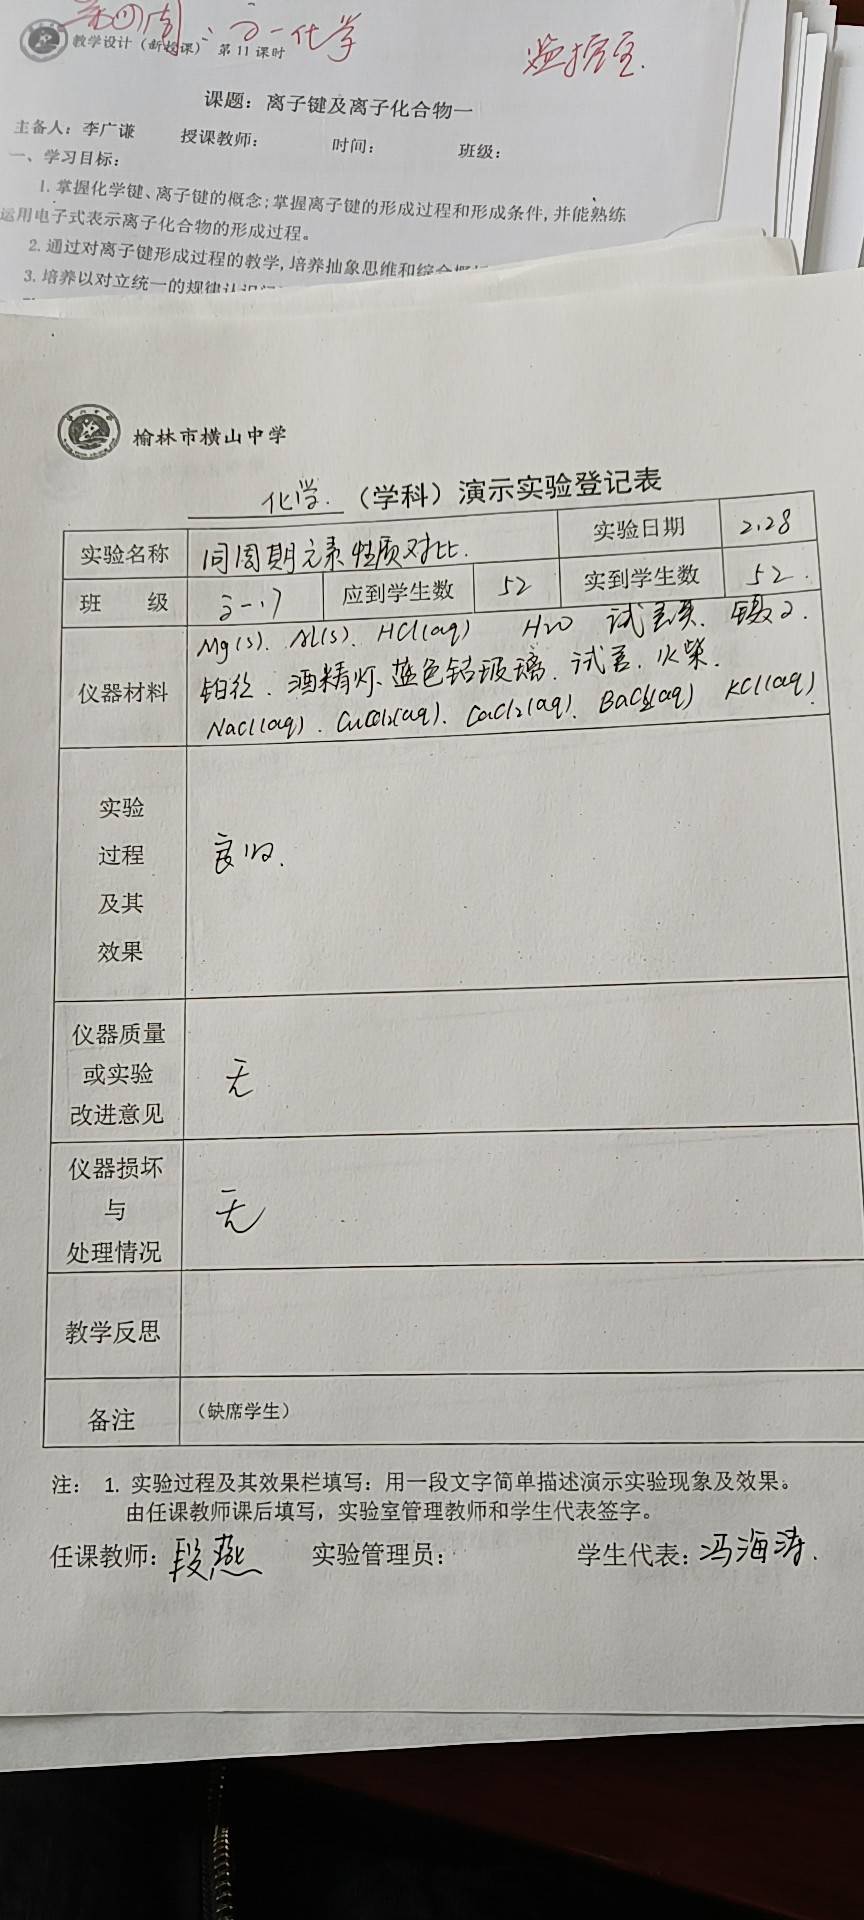 第四周：高一化学
教学设计（新授课） 第 11 课时
课题：离子键及离子化合物一
主备人：李广谦 授课教师： 时间： 班级：
一、学习目标：
1. 掌握化学键、离子键的概念；掌握离子键的形成过程和形成条件，并能熟练
运用电子式表示离子化合物的形成过程。
2. 通过对离子键形成过程的教学，培养抽象思维和综合概
3. 培养以对立统一的规律认识问
榆林市横山中学
化学.（学科）演示实验登记表
实验名称 同周期元素性质对比. 实验日期 2.28
班 级 高一.17 应到学生数 52 实到学生数 52.
仪器材料 Mg(s). Al(s). HCl(aq) H2O 试管夹. 镊子.
铂丝. 酒精灯. 蓝色钴玻璃. 试管. 火柴.
NaCl(aq). CuCl2(aq). CaCl2(aq). BaCl2(aq) KCl(aq)
实验
过程
及其
效果
良好.
仪器质量
或实验
改进意见
无
仪器损坏
与
处理情况
无
教学反思
备注 （缺席学生）
注： 1. 实验过程及其效果栏填写：用一段文字简单描述演示实验现象及效果。
由任课教师课后填写，实验室管理教师和学生代表签字。
任课教师：段燕 实验管理员： 学生代表：冯海涛.